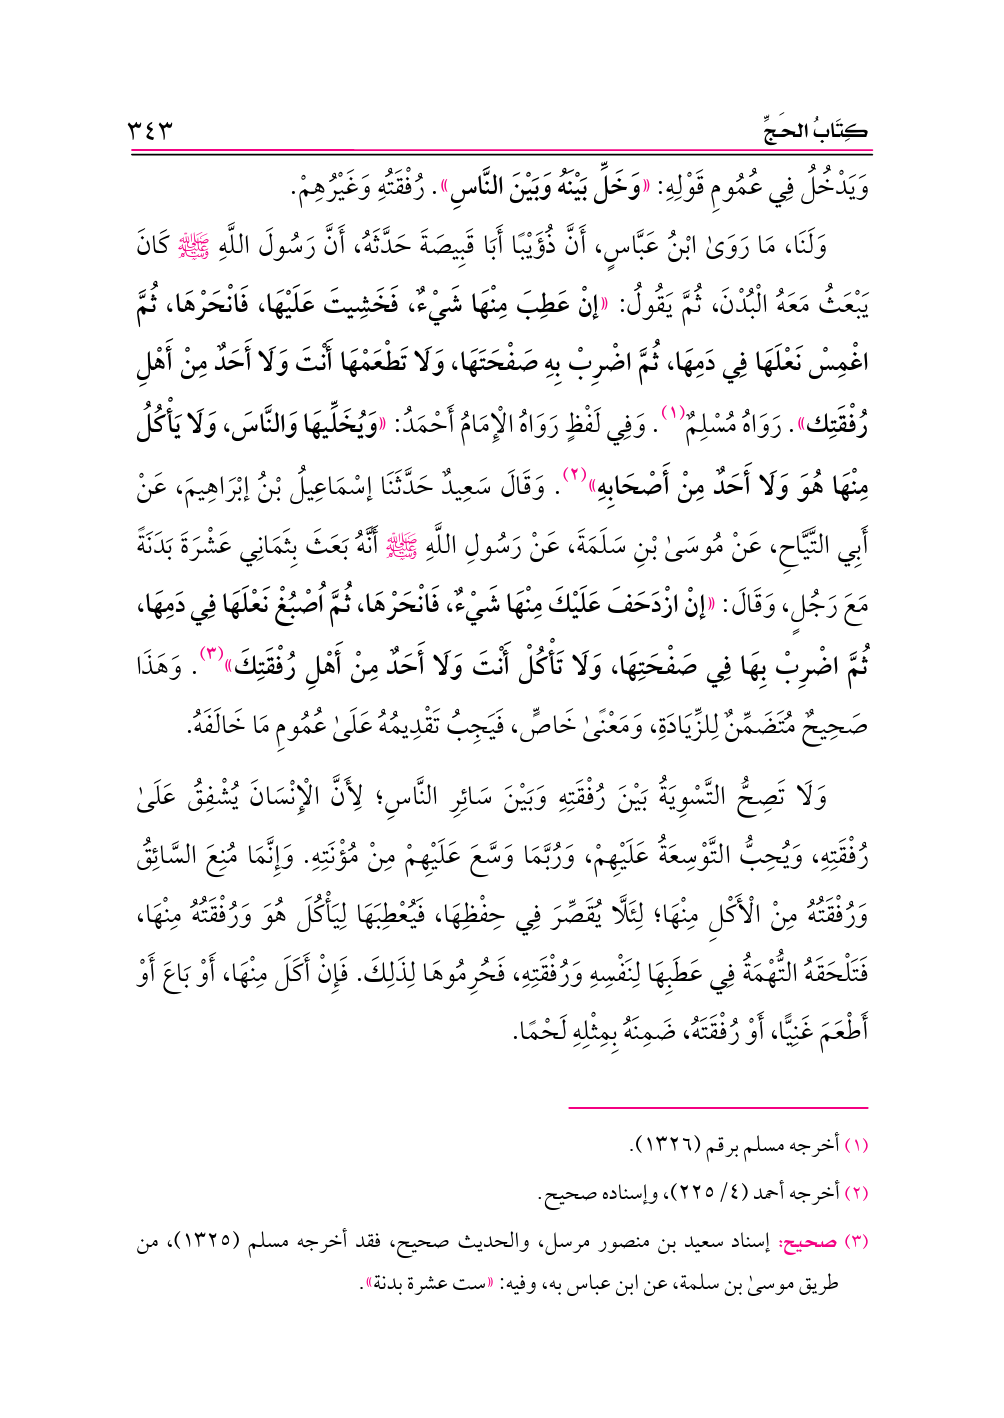 كِتَابُ الحَجِّ ٣٤٣
وَيَدْخُلُ فِي عُمُومِ قَوْلِهِ: «وَخَلِّ بَيْنَهُ وَبَيْنَ النَّاسِ». رُفْقَتُهِ وَغَيْرُهِمْ.
وَلَنَا، مَا رَوَىٰ ابْنُ عَبَّاسٍ، أَنَّ ذُؤَيْبًا أَبَا قَبِيصَةَ حَدَّثَهُ، أَنَّ رَسُولَ اللَّهِ ﷺ كَانَ
يَبْعَثُ مَعَهُ الْبُدْنَ، ثُمَّ يَقُولُ: «إنْ عَطِبَ مِنْهَا شَيْءٌ، فَخَشِيتَ عَلَيْهَا، فَانْحَرْهَا، ثُمَّ
اغْمِسْ نَعْلَهَا فِي دَمِهَا، ثُمَّ اضْرِبْ بِهِ صَفْحَتَهَا، وَلَا تَطْعَمْهَا أَنْتَ وَلَا أَحَدٌ مِنْ أَهْلِ
رُفْقَتِك». رَوَاهُ مُسْلِمٌ(١). وَفِي لَفْظٍ رَوَاهُ الْإِمَامُ أَحْمَدُ: «وَيُخَلِّيهَا وَالنَّاسَ، وَلَا يَأْكُلُ
مِنْهَا هُوَ وَلَا أَحَدٌ مِنْ أَصْحَابِهِ»(٢). وَقَالَ سَعِيدٌ حَدَّثَنَا إسْمَاعِيلُ بْنُ إبْرَاهِيمَ، عَنْ
أَبِي التَّيَّاحِ، عَنْ مُوسَىٰ بْنِ سَلَمَةَ، عَنْ رَسُولِ اللَّهِ ﷺ أَنَّهُ بَعَثَ بِثَمَانِي عَشْرَةَ بَدَنَةً
مَعَ رَجُلٍ، وَقَالَ: «إنْ ازْدَحَفَ عَلَيْكَ مِنْهَا شَيْءٌ، فَانْحَرْهَا، ثُمَّ اُصْبُغْ نَعْلَهَا فِي دَمِهَا،
ثُمَّ اضْرِبْ بِهَا فِي صَفْحَتِهَا، وَلَا تَأْكُلْ أَنْتَ وَلَا أَحَدٌ مِنْ أَهْلِ رُفْقَتِكَ»(٣). وَهَذَا
صَحِيحٌ مُتَضَمِّنٌ لِلزِّيَادَةِ، وَمَعْنًىٰ خَاصٍّ، فَيَجِبُ تَقْدِيمُهُ عَلَىٰ عُمُومِ مَا خَالَفَهُ.
وَلَا تَصِحُّ التَّسْوِيَةُ بَيْنَ رُفْقَتِهِ وَبَيْنَ سَائِرِ النَّاسِ؛ لِأَنَّ الْإِنْسَانَ يُشْفِقُ عَلَىٰ
رُفْقَتِهِ، وَيُحِبُّ التَّوْسِعَةُ عَلَيْهِمْ، وَرُبَّمَا وَسَّعَ عَلَيْهِمْ مِنْ مُؤْنَتِهِ. وَإِنَّمَا مُنِعَ السَّائِقُ
وَرُفْقَتُهُ مِنْ الْأَكْلِ مِنْهَا؛ لِئَلَّا يُقَصِّرَ فِي حِفْظِهَا، فَيُعْطِبَهَا لِيَأْكُلَ هُوَ وَرُفْقَتُهُ مِنْهَا،
فَتَلْحَقَهُ التُّهْمَةُ فِي عَطَبِهَا لِنَفْسِهِ وَرُفْقَتِهِ، فَحُرِمُوهَا لِذَلِكَ. فَإِنْ أَكَلَ مِنْهَا، أَوْ بَاعَ أَوْ
أَطْعَمَ غَنِيًّا، أَوْ رُفْقَتَهُ، ضَمِنَهُ بِمِثْلِهِ لَحْمًا.
(١) أخرجه مسلم برقم (١٣٢٦).
(٢) أخرجه أحمد (٤/ ٢٢٥)، وإسناده صحيح.
(٣) صحيح: إسناد سعيد بن منصور مرسل، والحديث صحيح، فقد أخرجه مسلم (١٣٢٥)، من
طريق موسىٰ بن سلمة، عن ابن عباس به، وفيه: «ست عشرة بدنة».